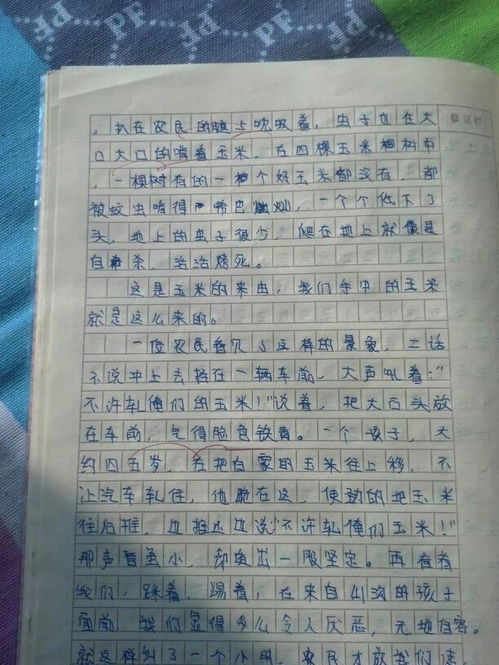 PF PF PF
备记栏
，趴在农民的脸上吮吸着，虫子也在大
口大口的啃着玉米，在四棵玉米树中
，一棵树有的一个好玉米都没有，都
被蚊虫啃得稀巴烂，一个个低下了
头，地上的虫子很少，爬在地上就像是
自杀，活活烤死。
这是玉米的来由，我们手中的玉米
就是这么来的。
一位农民看见了这样的景象，二话
不说冲上去挡在一辆车前，大声吼着："
不许轧俺们的玉米！"说着，把大石头放
在车前，气得脸色铁青。一个孩子，大
约四五岁，在把自家的玉米往上移，不
让汽车轧住，他蹲在这，使劲的把玉米
往后推，边推还边说"不许轧俺们玉米！"
那声音虽小，却透出一股坚定。再看看
我们，踩着，踢着，在来自山沟的孩子
面前，我们显得多么令人厌恶，无地自容。
就这样叫了一个小时，农民才放我们走，